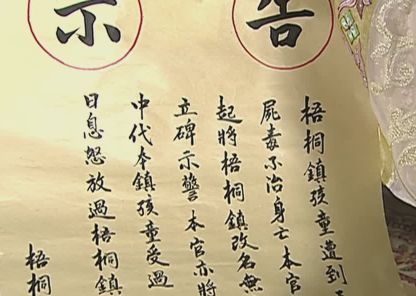 告示
梧桐鎮孩童遭到
屍毒不治身亡本官
起將梧桐鎮改名無
立碑示警本官亦將
中代本鎮孩童受過
日息怒放過梧桐鎮
梧桐